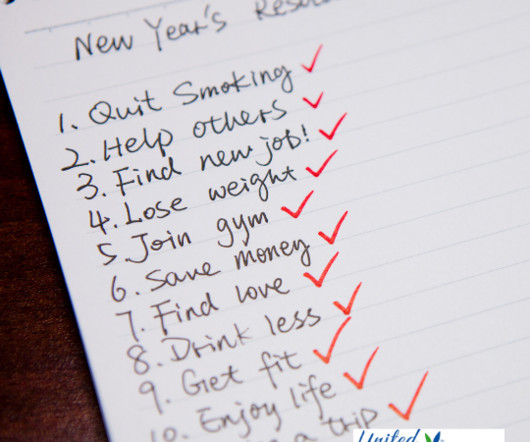 New Year's Resol
1. Quit Smoking
2. Help others
3. Find new job!
4. Lose weight
5. Join gym
6. Save money
7. Find love
8. Drink less
9. Get fit
10. Enjoy life
a trip
United